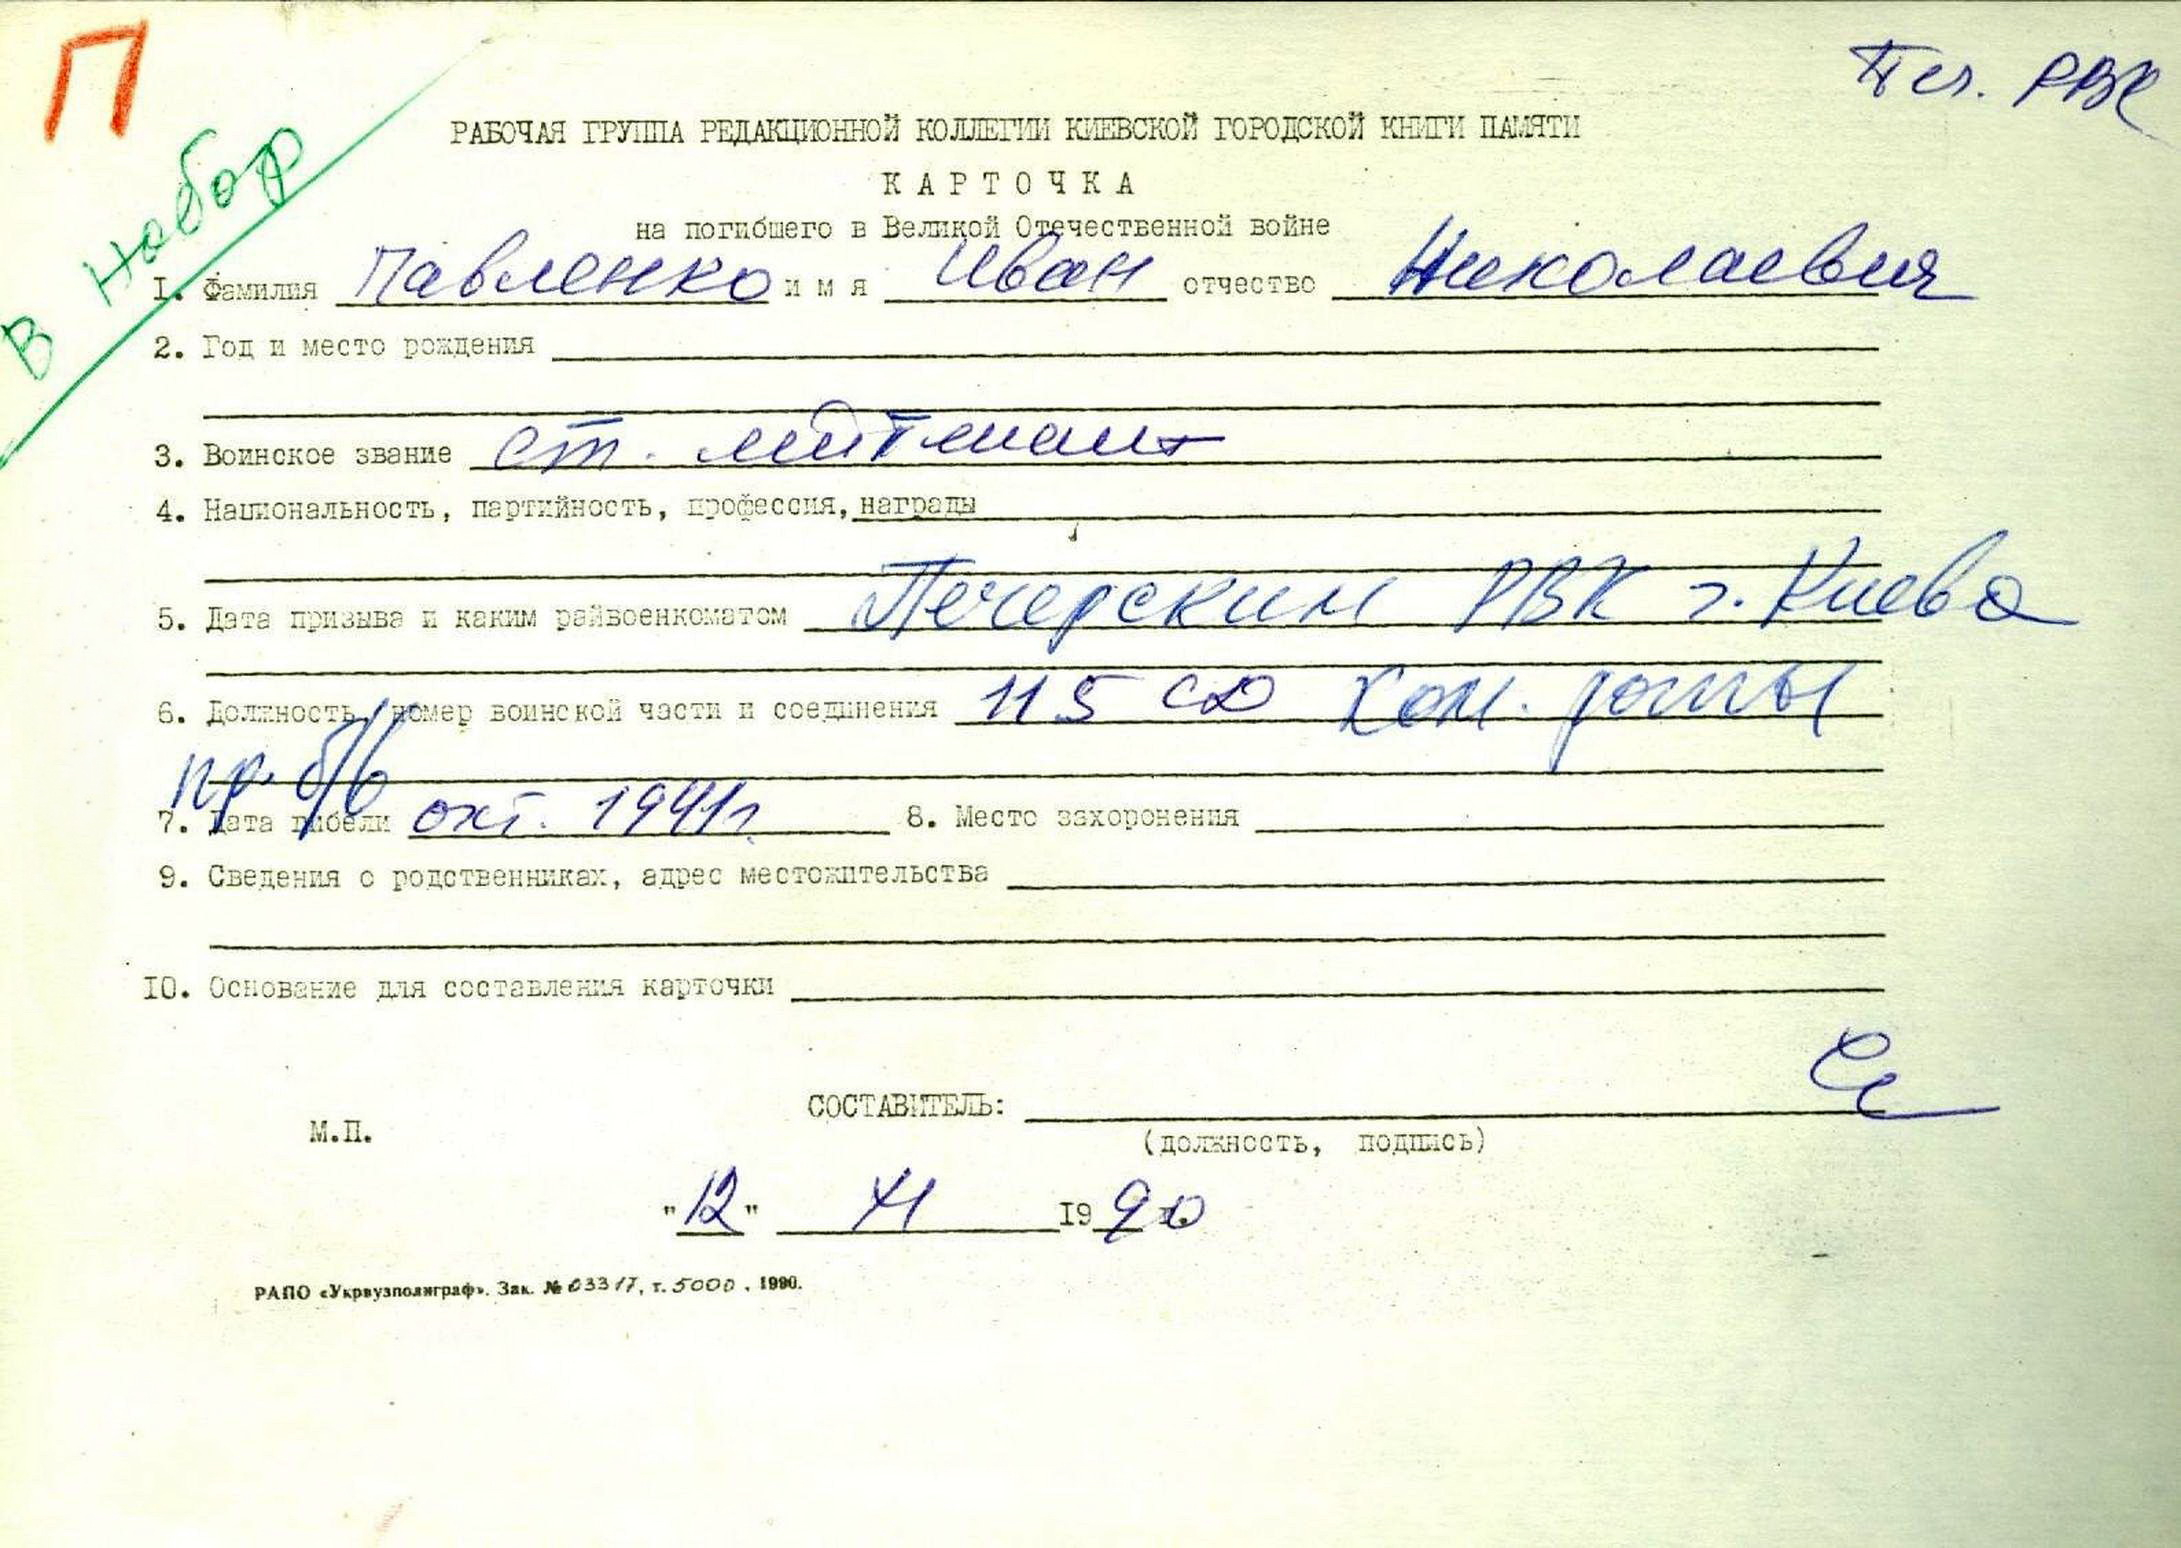 П
Печ. РВК
В набор
РАБОЧАЯ ГРУППА РЕДАКЦИОННОЙ КОЛЛЕГИИ КИЕВСКОЙ ГОРОДСКОЙ КНИГИ ПАМЯТИ
КАРТОЧКА
на погибшего в Великой Отечественной войне
I. Фамилия Павленко имя Иван отчество Николаевич
2. Год и место рождения
3. Воинское звание ст. лейтенант
4. Национальность, партийность, профессия, награды
5. Дата призыва и каким райвоенкоматом Печерским РВК г. Киева
6. Должность, номер воинской части и соединения 115 СД Ком. роты
пр. б/в
7. Дата гибели окт. 1941г. 8. Место захоронения
9. Сведения о родственниках, адрес местожительства
IO. Основание для составления карточки
СОСТАВИТЕЛЬ:
М.П.
(должность, подпись)
"12" XI 1990
РАПО «Укрвузполиграф». Зак. № 03317, т. 5000, 1990.